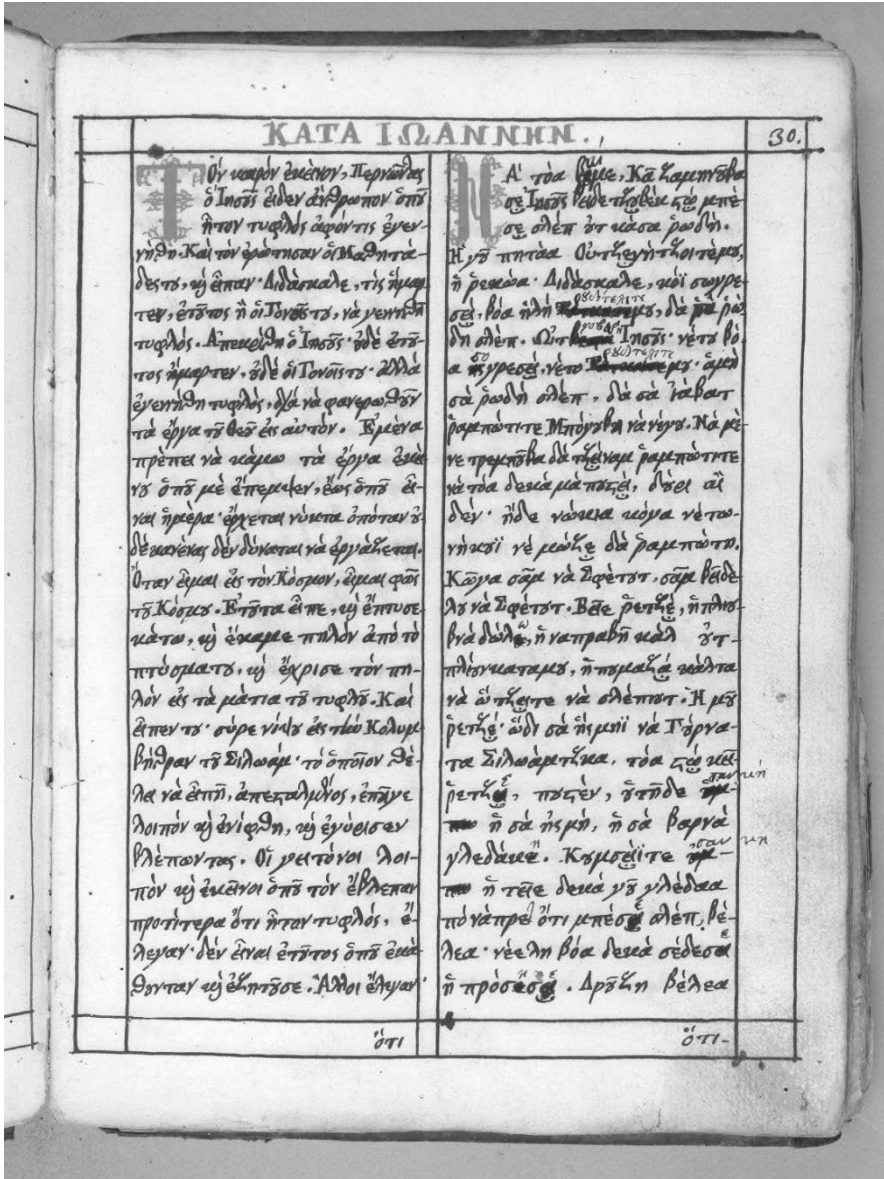 ΚΑΤΑ ΙΩΑΝΝΗΝ.
30.
Τὸν καιρόν ἐκεῖνον, Περνῶντας
ὁ Ἰησοῦς εἶδεν ἄνθρωπον ὁποῦ
ἦτον τυφλός ἀφόντις ἐγεν-
νήθη. Καὶ τὸν ἐρώτησαν οἱ Μαθητά-
δες του, κὶ εἶπαν· Διδάσκαλε, τίς ἥμαρ
τεν, ἐτοῦτος ἢ οἱ Γονοῦς του, νὰ γεννηθῆ
τυφλός. Ἀπεκρίθη ὁ Ἰησοῦς· οὐδέ ἐτοῦ-
τος ἥμαρτεν, οὐδέ οἱ Γονοῖς του· ἀλλά
ἐγεννήθη τυφλός, διὰ νὰ φανερωθοῦν
τὰ ἔργα τοῦ Θεοῦ εἰς αὐτόν. Ἐμένα
πρέπει νὰ κάμω τὰ ἔργα ἐκεί
νου ὁποῦ μὲ ἔπεμψεν, ἕως ὁποῦ εἶ-
ναι ἡμέρα· ἔρχεται νύκτα ὁπόταν οὐ-
δέ κανένας δὲν δύναται νὰ ἐργάζεται.
Ὅταν εἶμαι εἰς τὸν Κόσμον, εἶμαι φῶς
τοῦ Κόσμου. Ἐτοῦτα εἶπε, κὶ ἔπτυσε
κάτω, κὶ ἔκαμε πηλόν ἀπό τὸ
πτύσμα του, κὶ ἔχρισε τὸν πη-
λόν εἰς τὰ μάτια τοῦ τυφλοῦ. Καὶ
εἶπεν του· σύρε νίψου εἰς τὴν Κολυμ
βήθραν τοῦ Σιλωάμ· τὸ ὁποῖον θέ-
λει νὰ εἰπῆ, ἀπεσταλμένος, ἐπῆγε
λοιπόν κὶ ἐνίφθη, κὶ ἐγύρισεν
βλέπωντας. Οἱ γειτόνοι λοι-
πόν κὶ ἐκεῖνοι ὁποῦ τὸν ἔβλεπαν
προτίτερα ὅτι ἦτον τυφλός, ἔ-
λεγαν· δὲν εἶναι ἐτοῦτος ὁποῦ ἐκά-
θουνταν κὶ ἐζητοῦσε. Ἄλλοι ἔλεγαν·
ὅτι
Νὰ τόα, Κᾶ ζαμηνούβα
σε Ἰησοῦς βείδε τζουβέκ στῶ μπέ
σε σλέπ οὐτ κάσα ῥωδή.
Ἤ γου πητάα Οὐτζενήτζοι τέμου,
ἢ ῥεκόα· Διδάσκαλε, κόϊ σωγρε
σεί, βόα ἠλή ρουντελίτε μου, δὰ ῥώ
δη σλέπ. Ἰησοῦς· νέτου βό-
α σογρεσεί, νέτο ρουντελίτε μου· ἀμή
σὰ ῥωδή σλέπ, δὰ σὰ ἰάβατ
ῥαμπώτιτε Μπόγουβη νὰ νέγου. Νὰ μέ-
νε τρεμπούβα δὰ τζείναμ ῥαμπώτιτε
νὰ τόα δεκὰ μὰ πουστεί, δούρι αἴ
δέν· ἤδε νώκια κόγα νέτω-
νήκυϊ νέ μώζε δὰ ῥαμπώτη.
Κῶγα σᾶμ νὰ Σφέτουτ, σᾶμ βείδε
λου νὰ Σφέτουτ. Βείε ῥετζέ, ἢ πλιου
βνὰ δώλε, ἢ ναπραβή κάλ οὐτ-
πλιουνκατα μου, ἢ πυμαζά κάλτα
νὰ ὤτζειτε νὰ σλέπιουτ. Ἤ μου
ῥετζέ· ὤδι σὰ ἤσμηϊ νὰ Γούρνα-
τα Σιλωάμτζκα, τόα στῶ κεῖ
ῥετζῆ, πουστέν, ὄτηδε
ἢ σὰ ἠσμή, ἢ σὰ βαρνὰ
γλεδάκη. Κυμσείτε
ἢ τεῖε δεκὰ γου γλέδαα
πό νάπρεϊ ὅτι μπέση σλέπ, βέ-
λεα· νέε λη βόα δεκὰ σέδεση
ἢ πρόσεση. Δρούζη βέλεα
ὅτι-